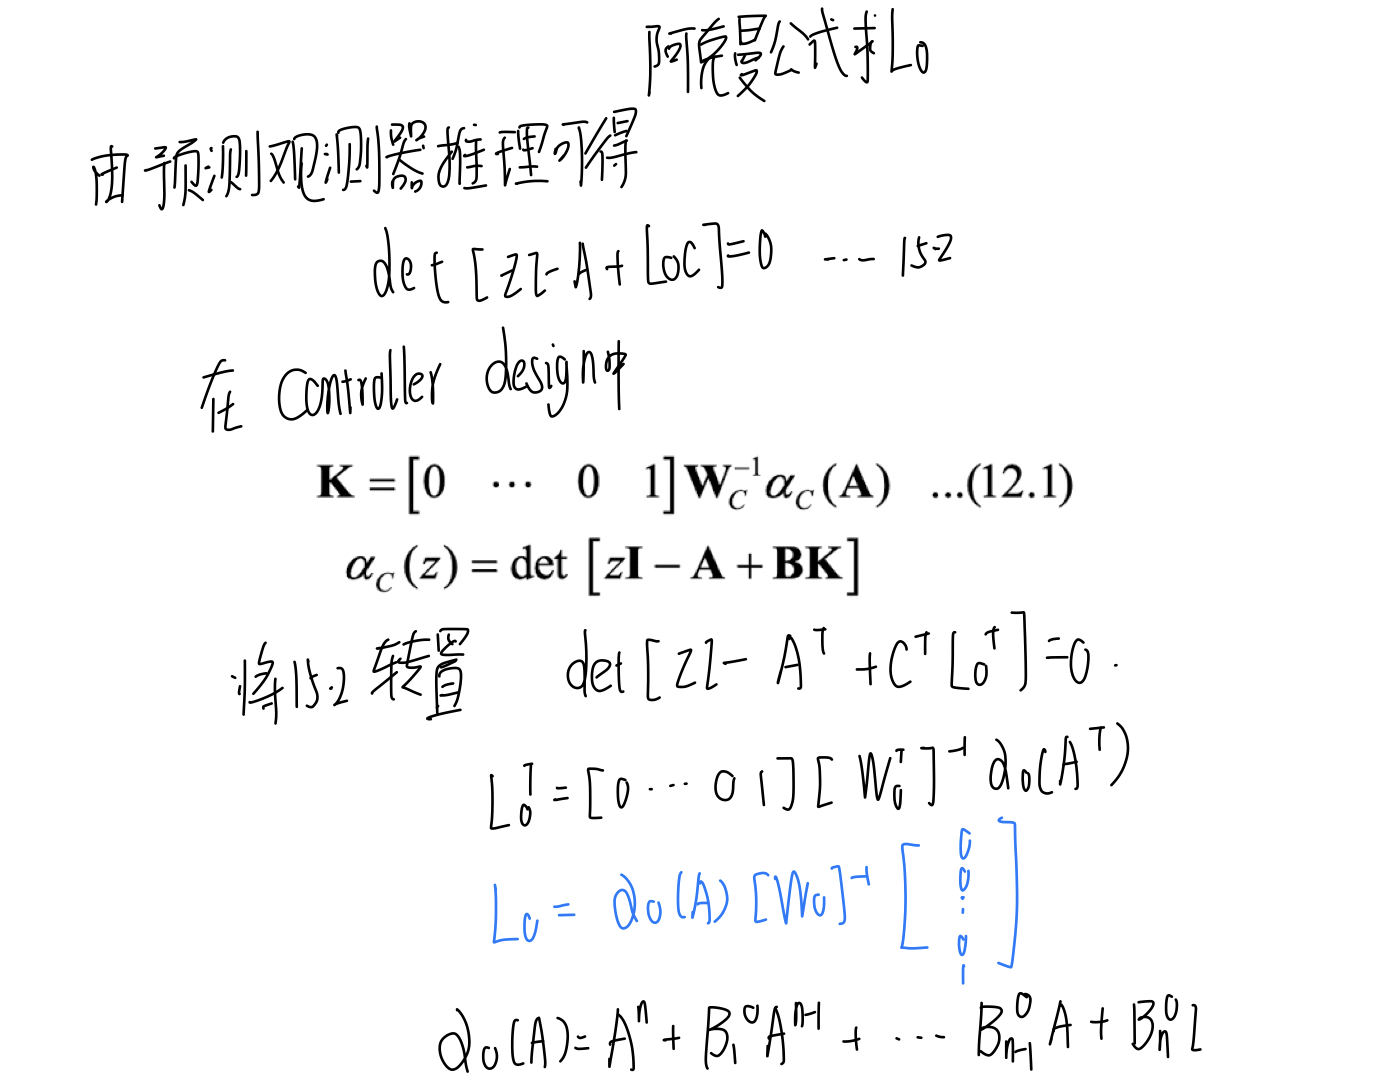 阿克曼公式求L₀
由预测观测器推理可得
det [zI-A+L₀C]=0 ... 15.2
在 Controller design中
K = [0 ⋯ 0 1] W_C^{-1} α_C(A) ...(12.1)
α_C(z) = det [zI − A + BK]
将15.2 转置 det [zI- A^T + C^T L₀^T]=0.
L₀^T = [0 ⋯ 0 1] [W₀^T]^{-1} α₀(A^T)
L₀ = α₀(A) [W₀]^{-1} [0 0 ⋮ 0 1]
α₀(A)= A^n + B₁^0 A^{n-1} + ⋯ B_{n-1}^0 A + B_n^0 I